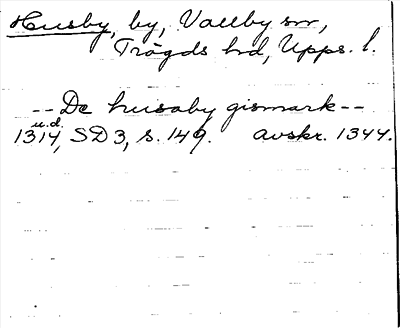 Husby, by, Vallby sn,
Trögds hd, Upps. l.
-- De husaby gismark --
u.d.
1314, SD 3, s. 149. avskr. 1344.